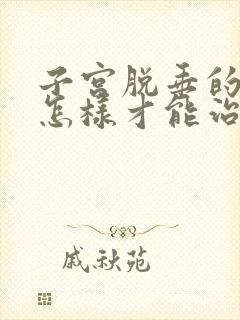 子宫脱垂的
怎样才能治
戚秋苑